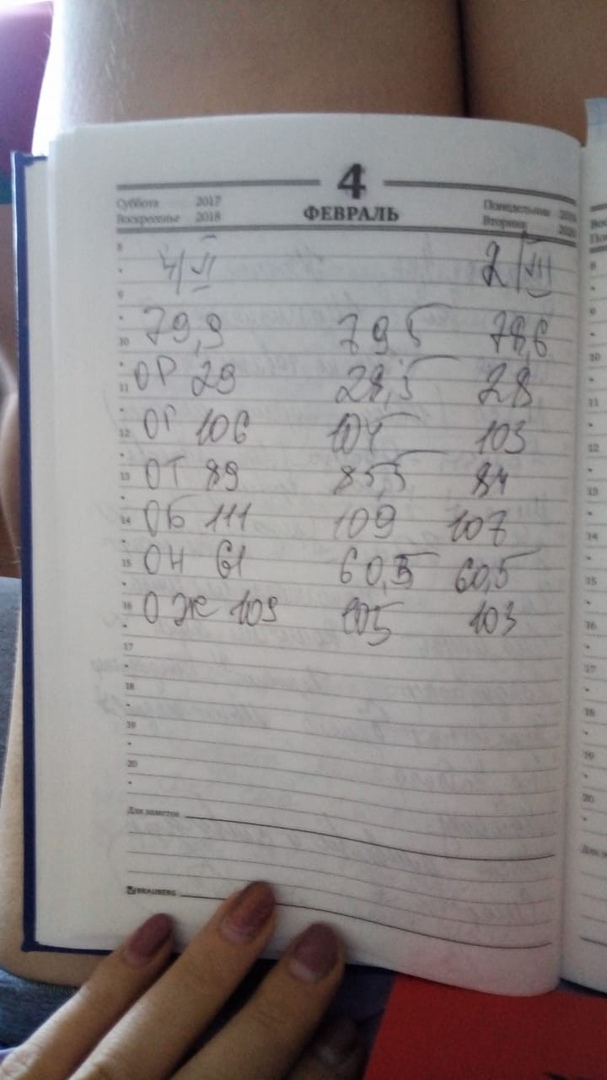 4
ФЕВРАЛЬ
Суббота 2017
Воскресенье 2018
Понедельник
Вторник
2/VII
79,9 79,5 78,6
ОР 29 28,5 28
ОГ 106 104 103
ОТ 89 85,5 84
ОБ 111 109 107
ОН 61 60,5 60,5
ОЖ 109 105 103
8
9
10
11
12
13
14
15
16
17
18
19
20
Для заметок
BRAUBERG